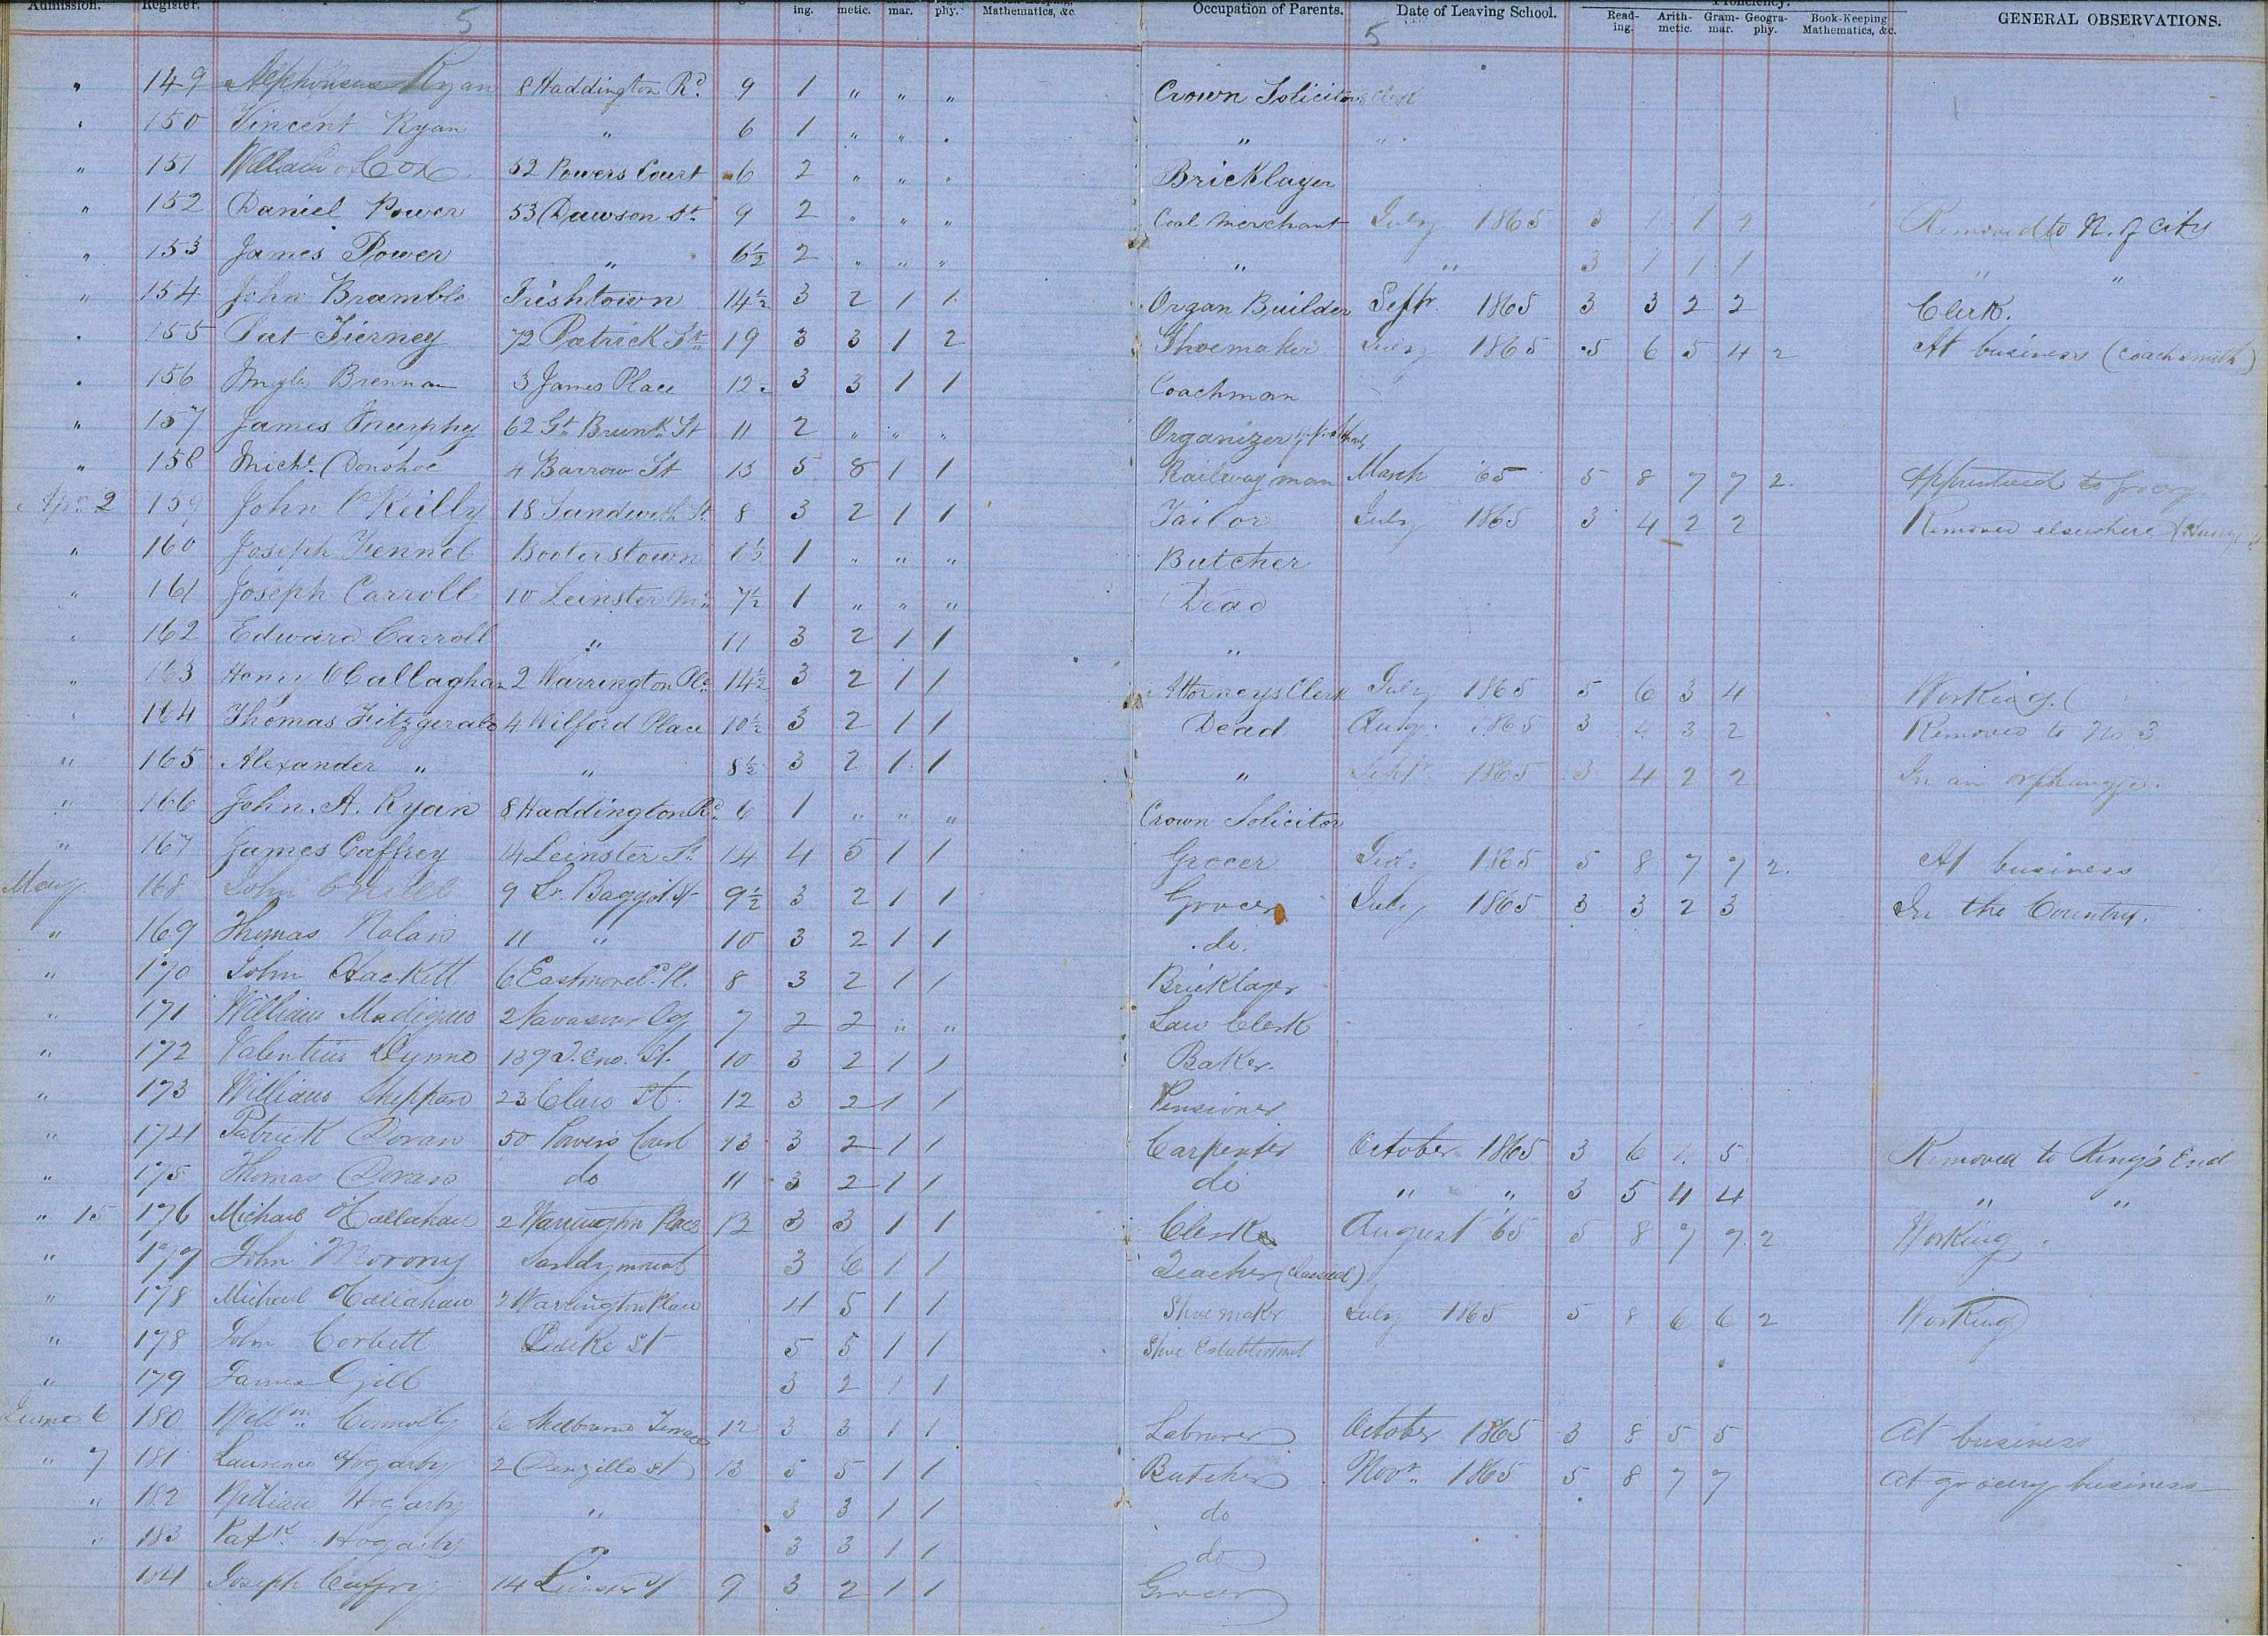 Admission. Register. ing. metic. mar. phy. Mathematics, &c Occupation of Parents. Date of Leaving School. Proficiency. GENERAL OBSERVATIONS.
Read-ing. Arith-metic. Gram-mar. Geogra-phy. Book-Keeping Mathematics, &c.
5 5
" 149 Alphonsus Ryan 8 Haddington Rd. 9 1 " " " Crown Solicitors Clerk
" 150 Vincent Ryan " 6 1 " " " " "
" 151 William Cox 52 Powers Court 6 2 " " " Bricklayer
" 152 Daniel Power 53 Dawson St. 9 2 " " " Coal Merchant July 1865 3 1 1 2 Removed to N. of City
" 153 James Power " 6½ 2 " " " " " 3 1 1 1 " "
" 154 John Bramble Irishtown 14½ 3 2 1 1 Organ Builder Septr. 1865 3 3 2 2 Clerk.
" 155 Pat Tierney 72 Patrick St. 19 3 3 1 2 Shoemaker July 1865 5 6 5 4 2 At business (coach smith)
" 156 Brennan 3 James Place 12 3 3 1 1 Coachman
" 157 James Murphy 62 Gt. Brunk. St 11 2 " " " Organizer
" 158 Michl. Donohoe 4 Barrow St 13 5 8 1 1 Railway man March '65 5 8 7 7 2. Apprenticed to Grocery
Apr. 2 159 John O'Reilly 18 Sandwith St. 8 3 2 1 1 Tailor July 1865 3 4 2 2 Removed elsewhere
" 160 Joseph Fennel Booterstown 1 " " " Butcher
" 161 Joseph Carroll 10 Leinster Mt. 7½ 1 " " " Dead
" 162 Edward Carroll " 11 3 2 1 1 "
" 163 Henry O'Callaghan 2 Warrington Plc. 14½ 3 2 1 1 Attorneys Clerk July 1865 5 6 3 4 Working.
" 164 Thomas Fitzgerald 4 Wilford Place 10½ 3 2 1 1 Dead Aug. 1865 3 4 3 2 Removed to No 3
" 165 Alexander " " 8½ 3 2 1 1 " Septr. 1865 3 4 2 2 In an orphanage.
" 166 John. A. Ryan 8 Haddington Rd. 6 1 " " " Crown Solicitor
" 167 James Caffrey 14 Leinster St. 14 4 5 1 1 Grocer July 1865 5 8 7 7 2. At business
May 168 John O'Neill 9 Lr. Baggot St 9½ 3 2 1 1 Grocer July 1865 3 3 2 3 In the Country.
" 169 Thomas Nolan 11 " 10 3 2 1 1 do.
" 170 John Hackett 6 Eastmored. Pl. 8 3 2 1 1 Bricklayer
" 171 William Madigan 2 Navasour 7 2 2 " " Law Clerk
" 172 Valentine Dynne 139 T. Eno. St. 10 3 2 1 1 Baker.
" 173 William Sheppard 23 Clare St. 12 3 2 1 1 Pensioner
" 174 Patrick Doran 50 Power's Court 13 3 2 1 1 Carpenter October 1865 3 6 1. 5 Removed to Ring's End
" 175 Thomas Doran do 11 3 2 1 1 do " " 3 5 4 4 " "
" 15 176 Michael O'Callaghan 2 Warrington Place 12 3 3 1 1 Clerk August '65 5 8 7 7 2 Working.
" 177 John Morony Sandymount 3 6 1 1 Teacher
" 178 Michael O'Callahan 2 Warrington Place 4 5 1 1 Shoemaker July 1865 5 8 6 6 2 Working
" 178 John Corbett Duke St 5 5 1 1 Shoe Establishment
" 179 James Gill 3 2 1 1
June 6 180 Willm. Connolly 6 Shelbourne Terrace 12 3 3 1 1 Labourer October 1865 3 8 5 5 At business
" 7 181 Laurence Hogarty 2 Denzille St 13 5 5 1 1 Butcher Novr. 1865 5 8 7 7 At grocery business
" 182 William Hogarty " 3 3 1 1 do
" 183 Patk. Hogarty " 3 3 1 1 do
184 Joseph Caffrey 14 Leinster St 9 3 2 1 1 Grocer